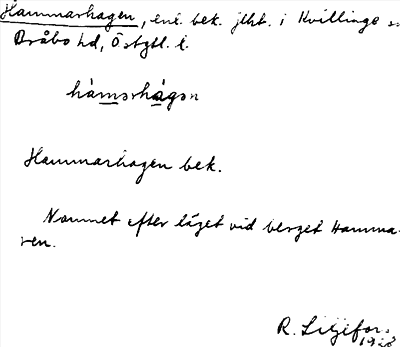 Hammarhagen, enl. bek. jlht. i Kvillinge sn
Bråbo hd, Östgtl. l.
hàmərhàgən
Hammarhagen bek.
Namnet efter läget vid berget Hamma-
ren.
R. Liljefors.